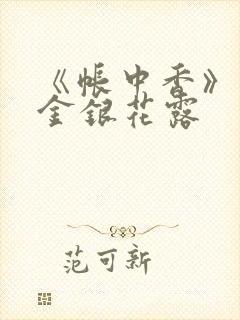 《帐中香》
金银花露
范可新